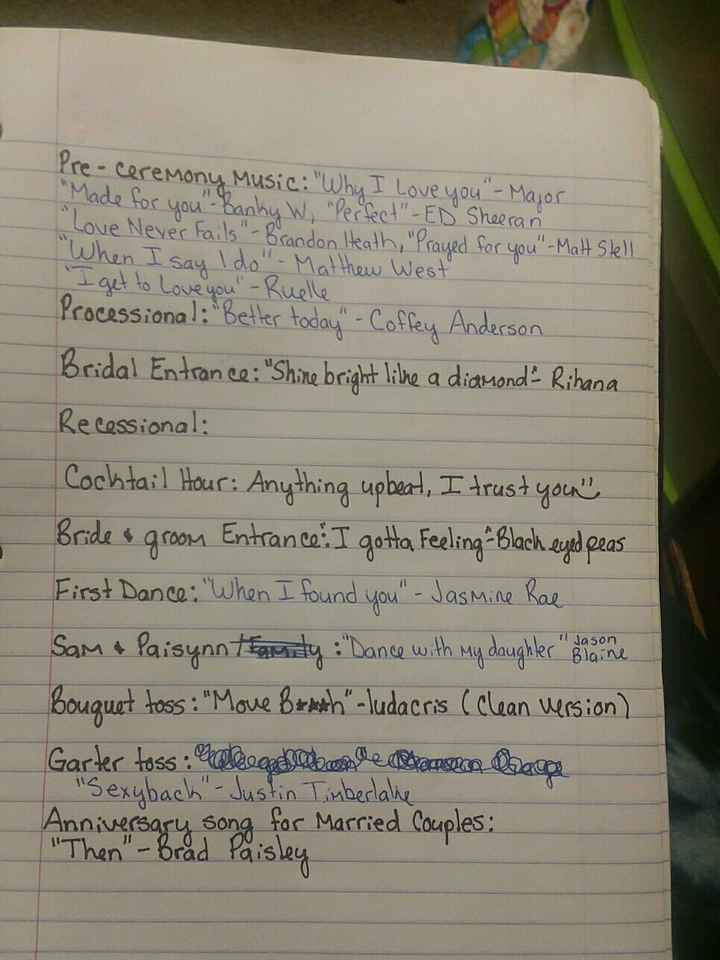 Pre-ceremony Music: "Why I Love you" - Major
"Made for you" - Banky W, "Perfect" - ED Sheeran
"Love Never Fails" - Brandon Heath, "Prayed for you" - Matt Stell
"When I say I do" - Matthew West
"I get to Love you" - Ruelle
Processional: "Better today" - Coffey Anderson
Bridal Entrance: "Shine bright like a diamond" - Rihana
Recessional:
Cocktail Hour: Anything upbeat, I trust you
Bride & groom Entrance: "I gotta Feeling" - Black eyed peas
First Dance: "When I found you" - Jasmine Rae
Sam & Paisynn / Family : "Dance with my daughter" Jason Blaine
Bouquet toss: "Move B***h" - ludacris (Clean version)
Garter toss:
"Sexyback" - Justin Timberlake
Anniversary song for Married Couples:
"Then" - Brad Paisley